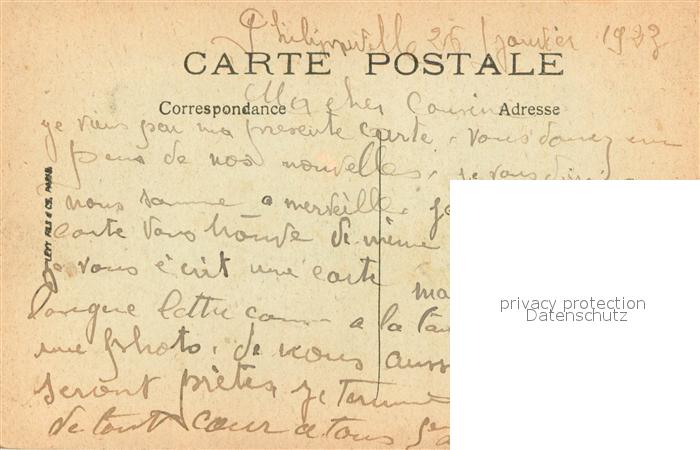 Philippeville 26 Janvier 1923
CARTE POSTALE
Mes cher Cousins
Correspondance Adresse
je viens par ma presente carte, vous donnez un
peux de nos nouvelles, je vous
nous somme a merveille. Je
carte vous trouve de même
vous écrit une carte
ma
longue lettre comme a la
une photo, de vous aussi
seront prètes, je termine
de tout cœur a tous
LEVY FILS & CIE, PARIS
privacy protection
Datenschutz